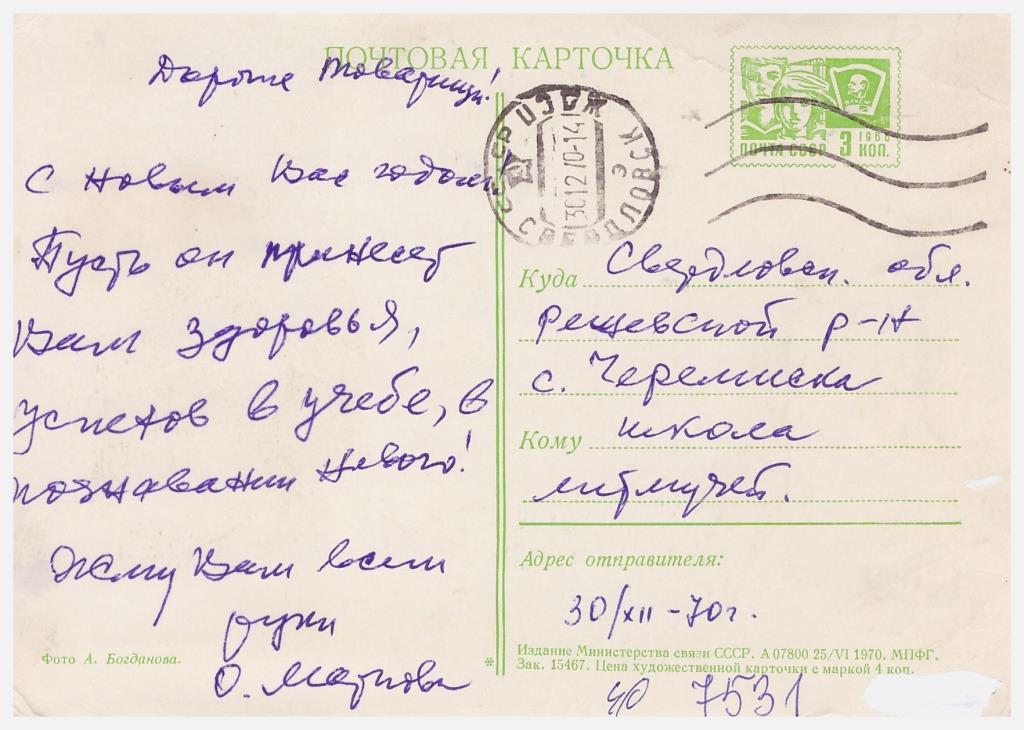 ПОЧТОВАЯ КАРТОЧКА
Дорогие товарищи!
С Новым Вас годом
Пусть он принесет
Вам здоровья,
успехов в учебе, в
познавании нового!
Жму Вам всем
руки
О. Маркова
Фото А. Богданова.
*
СССР СВЕРДЛОВСК
301270-14
Э
ВЛКСМ
1966
ПОЧТА СССР 3 КОП.
Куда Свердловск. обл.
Режевской р-н
с. Черемисска
Кому школа
Адрес отправителя:
30/XII-70г.
Издание Министерства связи СССР. А 07800 25/VI 1970. МПФГ.
Зак. 15467. Цена художественной карточки с маркой 4 коп.
7531